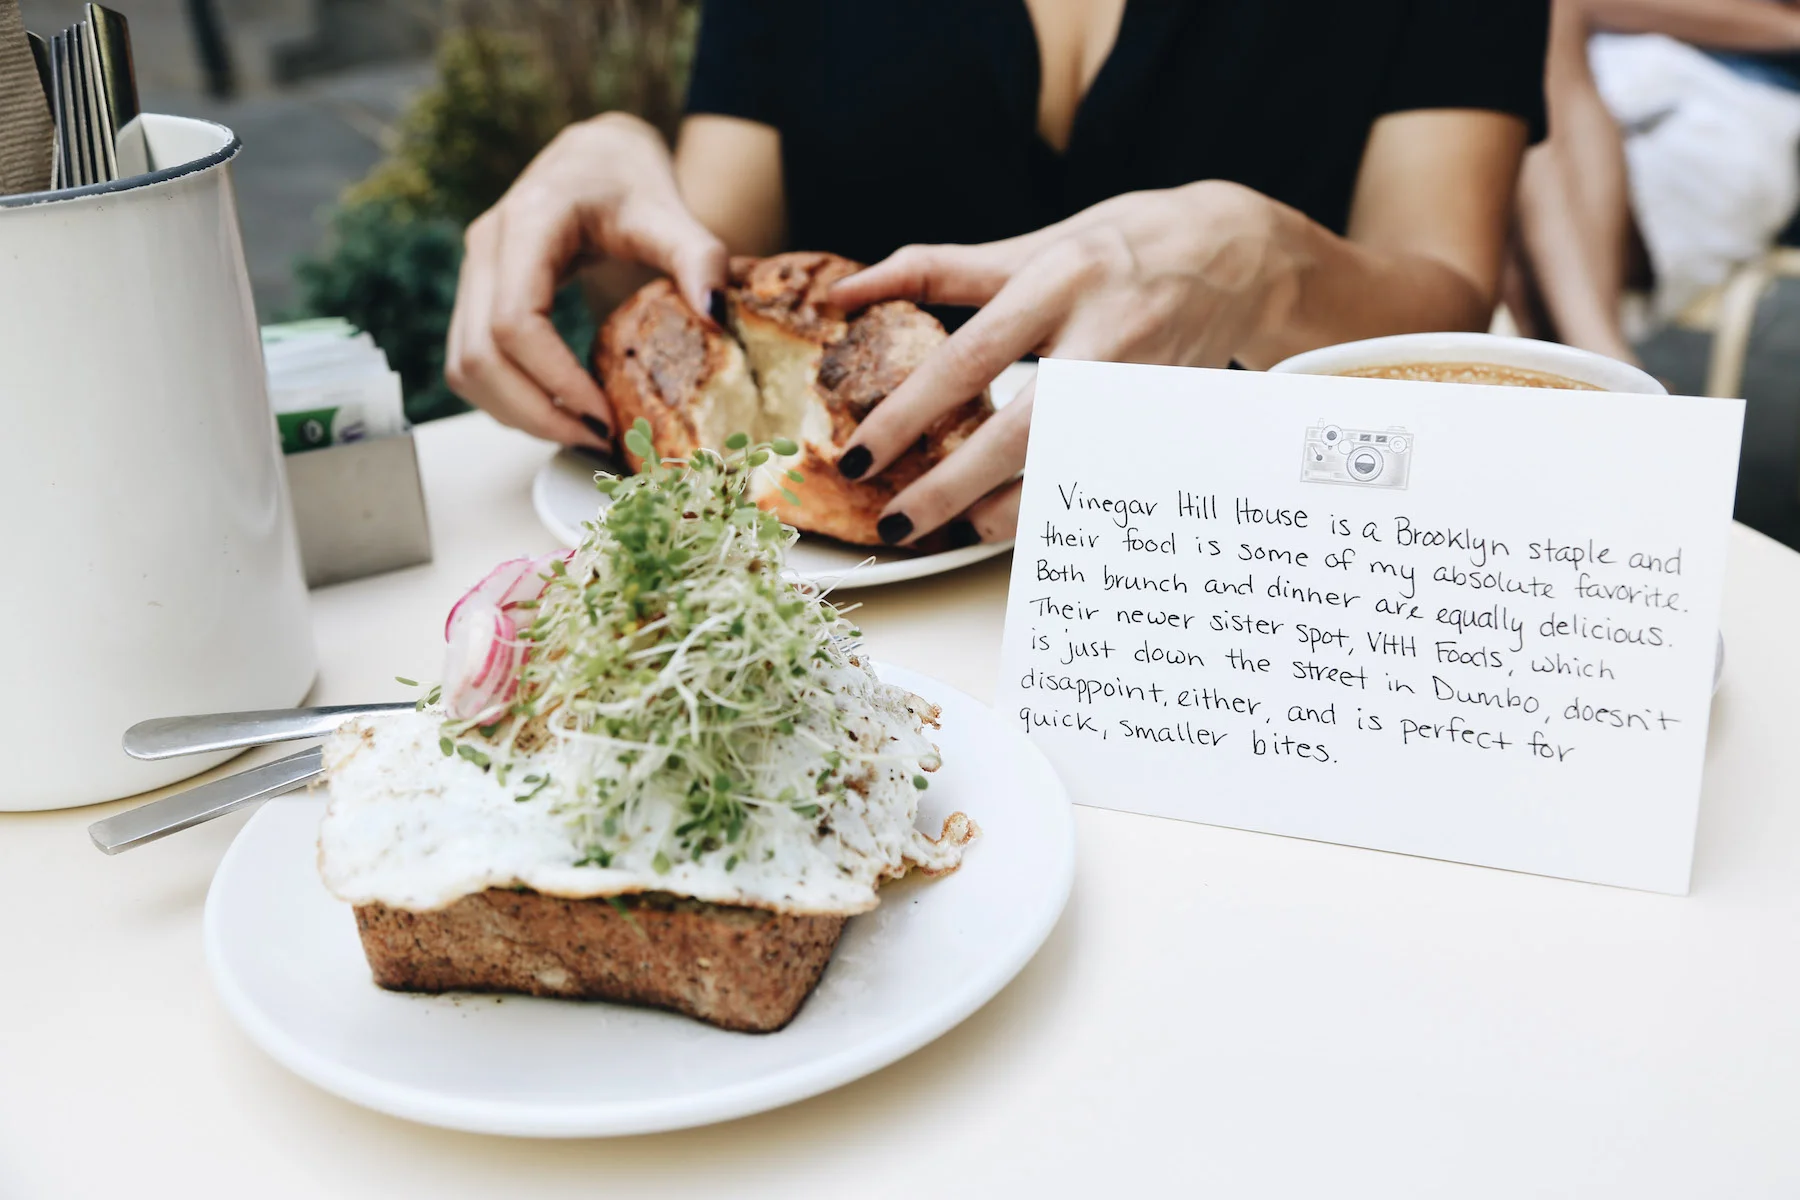 Vinegar Hill House is a Brooklyn staple and
their food is some of my absolute favorite.
Both brunch and dinner are equally delicious.
Their newer sister spot, VHH Foods, which
is just down the street in Dumbo, doesn't
disappoint, either, and is perfect for
quick, smaller bites.